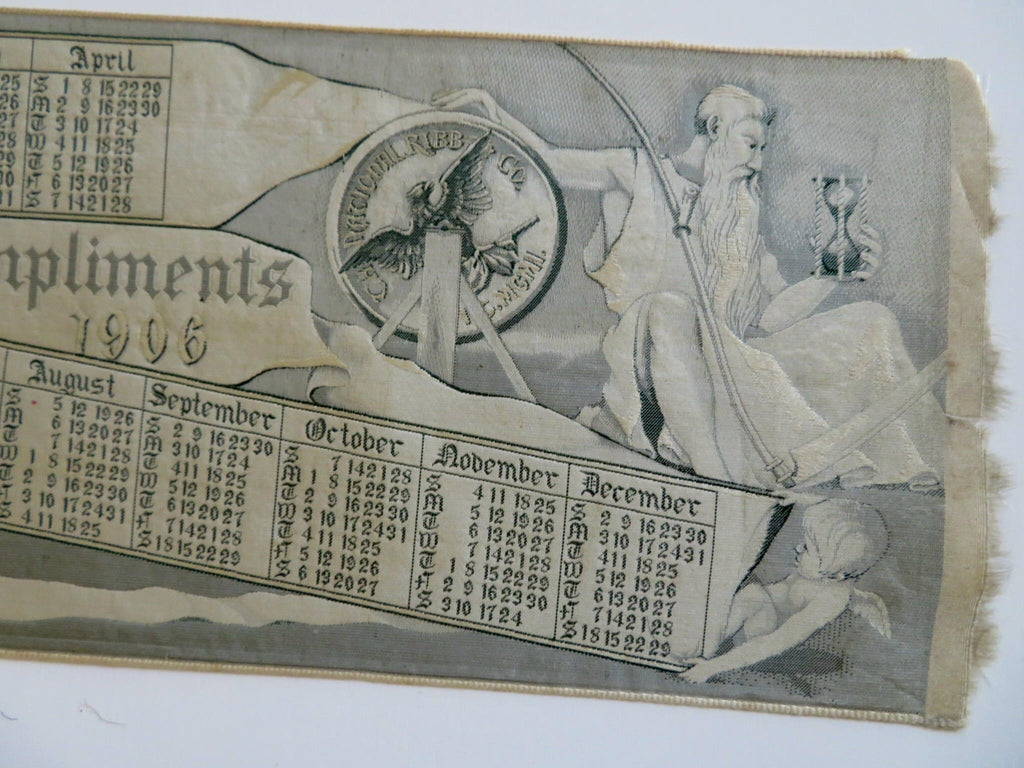 April
25 S 1 8 15 22 29
26 M 2 9 16 23 30
27 T 3 10 17 24
28 W 4 11 18 25
29 T 5 12 19 26
30 F 6 13 20 27
31 S 7 14 21 28
RIBB CO.
mpliments
1906
August
S 5 12 19 26
M 6 13 20 27
T 7 14 21 28
W 1 8 15 22 29
T 2 9 16 23 30
F 3 10 17 24 31
S 4 11 18 25
September
S 2 9 16 23 30
M 3 10 17 24
T 4 11 18 25
W 5 12 19 26
T 6 13 20 27
F 7 14 21 28
S 1 8 15 22 29
October
S 7 14 21 28
M 1 8 15 22 29
T 2 9 16 23 30
W 3 10 17 24 31
T 4 11 18 25
F 5 12 19 26
S 6 13 20 27
November
S 4 11 18 25
M 5 12 19 26
T 6 13 20 27
W 7 14 21 28
T 1 8 15 22 29
F 2 9 16 23 30
S 3 10 17 24
December
S 2 9 16 23 30
M 3 10 17 24 31
T 4 11 18 25
W 5 12 19 26
T 6 13 20 27
F 7 14 21 28
S 1 8 15 22 29